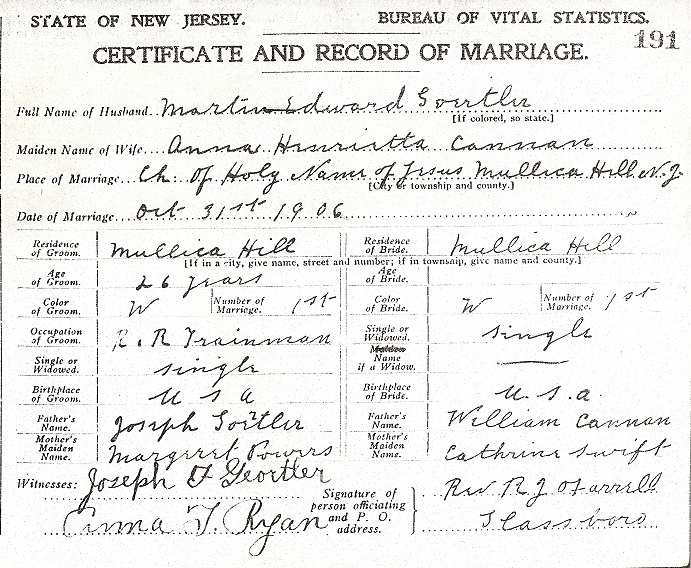 STATE OF NEW JERSEY. BUREAU OF VITAL STATISTICS.
191
CERTIFICATE AND RECORD OF MARRIAGE.
Full Name of Husband Martin Edward Goertler
[If colored, so state.]
Maiden Name of Wife Anna Henrietta Cannan
Place of Marriage Ch. Of Holy Name of Jesus Mullica Hill N.J.
[City or township and county.]
Date of Marriage Oct 31st 1906
Residence of Groom. Mullica Hill Residence of Bride. Mullica Hill
[If in a city, give name, street and number; if in township, give name and county.]
Age of Groom. 26 years Age of Bride.
Color of Groom. W Number of Marriage. 1st Color of Bride. W Number of Marriage. 1st
Occupation of Groom. R. R Trainman Single or Widowed. single
Single or Widowed. single Maiden Name if a Widow. —
Birthplace of Groom. U S A Birthplace of Bride. U. S. a.
Father's Name. Joseph Goertler Father's Name. William Cannan
Mother's Maiden Name. Margaret Powers Mother's Maiden Name. Cathrine Swift
Witnesses: Joseph F Geortler Signature of person officiating and P. O. address. Rev R J O Farrell
Anna T. Ryan Glassboro